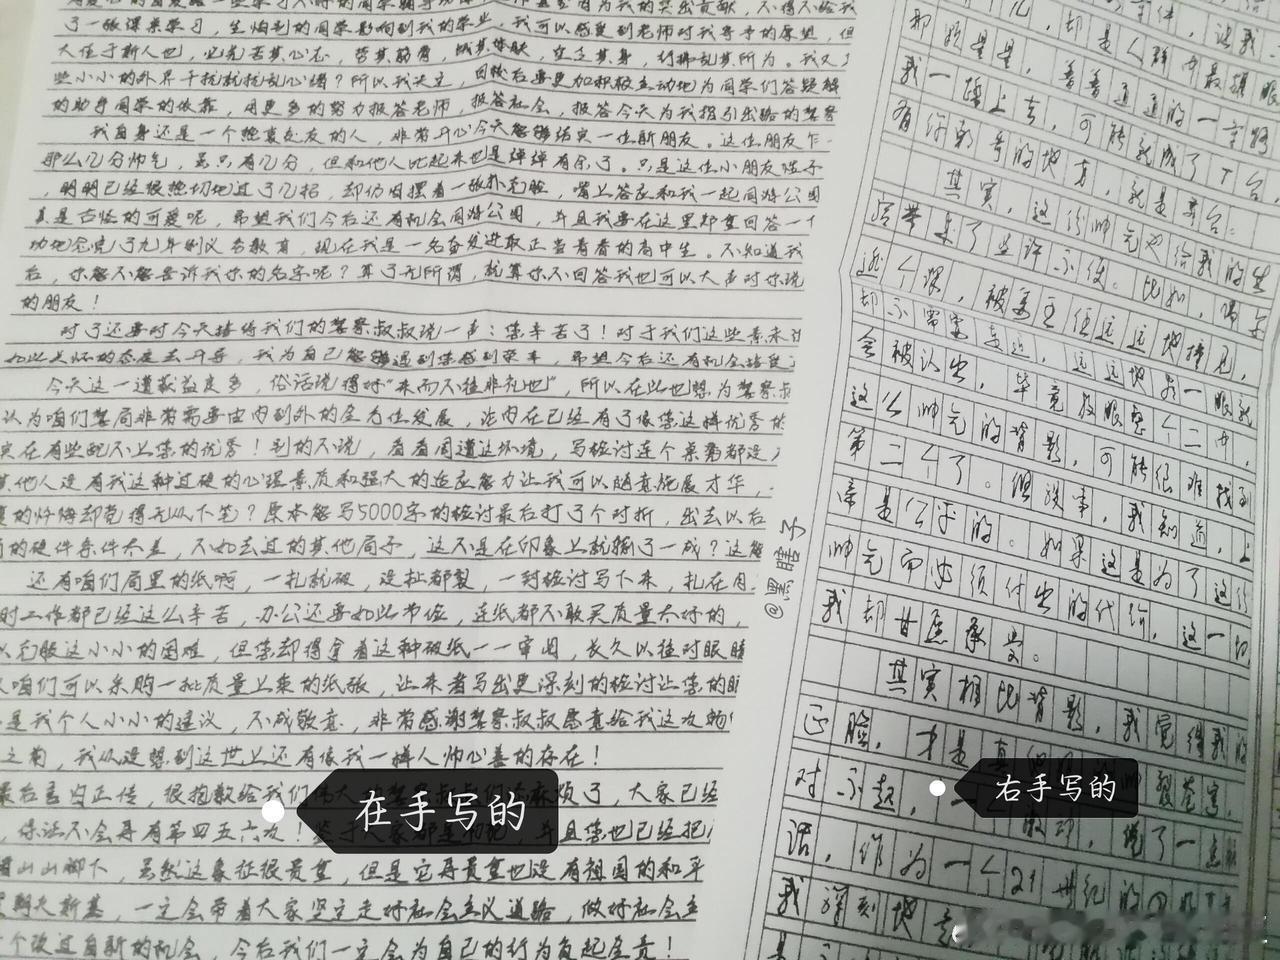 了一张课桌学习，生怕别的同学影响到我的学业，我可以感受到老师对我寄予的厚望，但
大任于斯人也，必先苦其心志，苦其筋骨，饿其体肤，空乏其身，行拂乱其所为。我又
些小小的外界干扰就扰乱心绪？所以我决定，回校后要更加积极主动地为同学们答疑解
的助身同学的依靠，用更多的努力报答老师，报答社会，报答今天为我指引出路的警察
我自身还是一个热衷交友的人，非常开心今天能够结实一位新朋友。这位朋友乍一
那么几分帅气，虽只有几分，但和他人比起来也是绰绰有余了。只是这位小朋友性子
，明明已经很热切地过了几招，却仍旧摆着一张扑克脸，嘴上答应和我一起同游公园
真是古怪的可爱呢，希望我们今后还有机会同游公园，并且我要在这里郑重回答一下
功地完成了九年制义务教育，现在我是一名奋发进取正当青春的高中生。不知道我
后，你能不能告诉我你的名字呢？算了无所谓，就算你不回答我也可以大声对你说
的朋友！
对了还要对今天接待我们的警察叔叔说一声：您辛苦了！对于我们这些素未
如此关怀的态度去开导，我为自己能够遇到您感到荣幸，希望今后还有机会接受
今天这一遭获益良多，俗话说得好“来而不往非礼也”，所以在此也想为警察叔
认为咱们警局非常需要由内到外的全方位发展，局内在已经有了像您这样优秀的
实在有些配不上您的优秀！别的不说，看看周遭这环境，写检讨连个桌角都没
其他人没有我这种过硬的心理素质和强大的适应能力让我可以随意施展才华，
真的忏悔却觉得无从下笔？原本能写5000字的检讨最后打了个对折，出去以后
的硬件条件太差，不如去过的其他局子，这不是在印象上就输了一成？这能
还有咱们局里的纸啊，一扎就破，没扯都裂，一封检讨写下来，扎在月
时工作都已经这么辛苦，办公还要如此节俭，连纸都不敢买质量太好的，
以克服这小小的困难，但您却得拿着这种破纸一一审阅，长久以往对眼睛
议咱们可以采购一批质量上乘的纸张，让来者写出更深刻的检讨让您的眼
是我个人小小的建议，不成敬意，非常感谢警察叔叔愿意给我这次畅
之前，我从没想到这世上还有像我一样人帅心善的存在！
最后言归正传，很抱歉给我们伟大的警察叔叔们添麻烦了，大家已经
，保证不会再有第四五六次！鉴于大家都是初犯，并且您也已经把
山山脚下，虽然这象征很贵重，但是它再贵重也没有祖国的和平
一定会带着大家坚定走好社会主义道路，做好社会主
个改过自新的机会，今后我们一定会为自己的行为负起全责！
在手写的
@黑瞎子
却是人群中最耀眼
那颗星星，普普通通的一条路
我一踏上去，可能就成了T台，
有你郭爷的地方，就是舞台。
其实，这份帅气也给我的生
活带来了些许不便。比如，偶尔
逃个课，被主任远远地撞见，
却不需要走近，远远地第一眼就
会被认出，毕竟放眼整个二中，
这么帅气的背影，可能很难找到
第二个了。但没事，我知道，上
帝是公平的。如果这是为了这份
帅气而必须付出的代价，这一切
我却甘愿承受。
其实相比背影，我觉得我的
正脸，才是真
对不起，
话，作为一个21世纪的
我深刻地意
右手写的